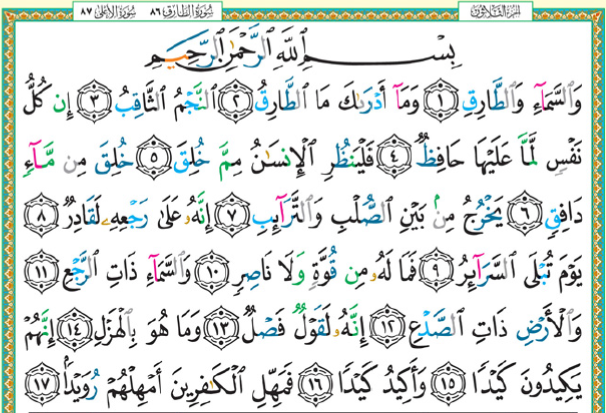 الجزء الثلاثون سورة الطارق ٨٦ سورة الأعلى ٨٧
بِسْمِ ٱللَّهِ ٱلرَّحْمَٰنِ ٱلرَّحِيمِ
وَٱلسَّمَآءِ وَٱلطَّارِقِ ١ وَمَآ أَدْرَىٰكَ مَا ٱلطَّارِقُ ٢ ٱلنَّجْمُ ٱلثَّاقِبُ ٣ إِن كُلُّ
نَفْسٍ لَّمَّا عَلَيْهَا حَافِظٌ ٤ فَلْيَنظُرِ ٱلْإِنسَٰنُ مِمَّ خُلِقَ ٥ خُلِقَ مِن مَّآءٍ
دَافِقٍ ٦ يَخْرُجُ مِنۢ بَيْنِ ٱلصُّلْبِ وَٱلتَّرَآئِبِ ٧ إِنَّهُۥ عَلَىٰ رَجْعِهِۦ لَقَادِرٌ ٨
يَوْمَ تُبْلَى ٱلسَّرَآئِرُ ٩ فَمَا لَهُۥ مِن قُوَّةٍ وَلَا نَاصِرٍ ١٠ وَٱلسَّمَآءِ ذَاتِ ٱلرَّجْعِ ١١
وَٱلْأَرْضِ ذَاتِ ٱلصَّدْعِ ١٢ إِنَّهُۥ لَقَوْلٌ فَصْلٌ ١٣ وَمَا هُوَ بِٱلْهَزْلِ ١٤ إِنَّهُمْ
يَكِيدُونَ كَيْدًا ١٥ وَأَكِيدُ كَيْدًا ١٦ فَمَهِّلِ ٱلْكَٰفِرِينَ أَمْهِلْهُمْ رُوَيْدًۢا ١٧